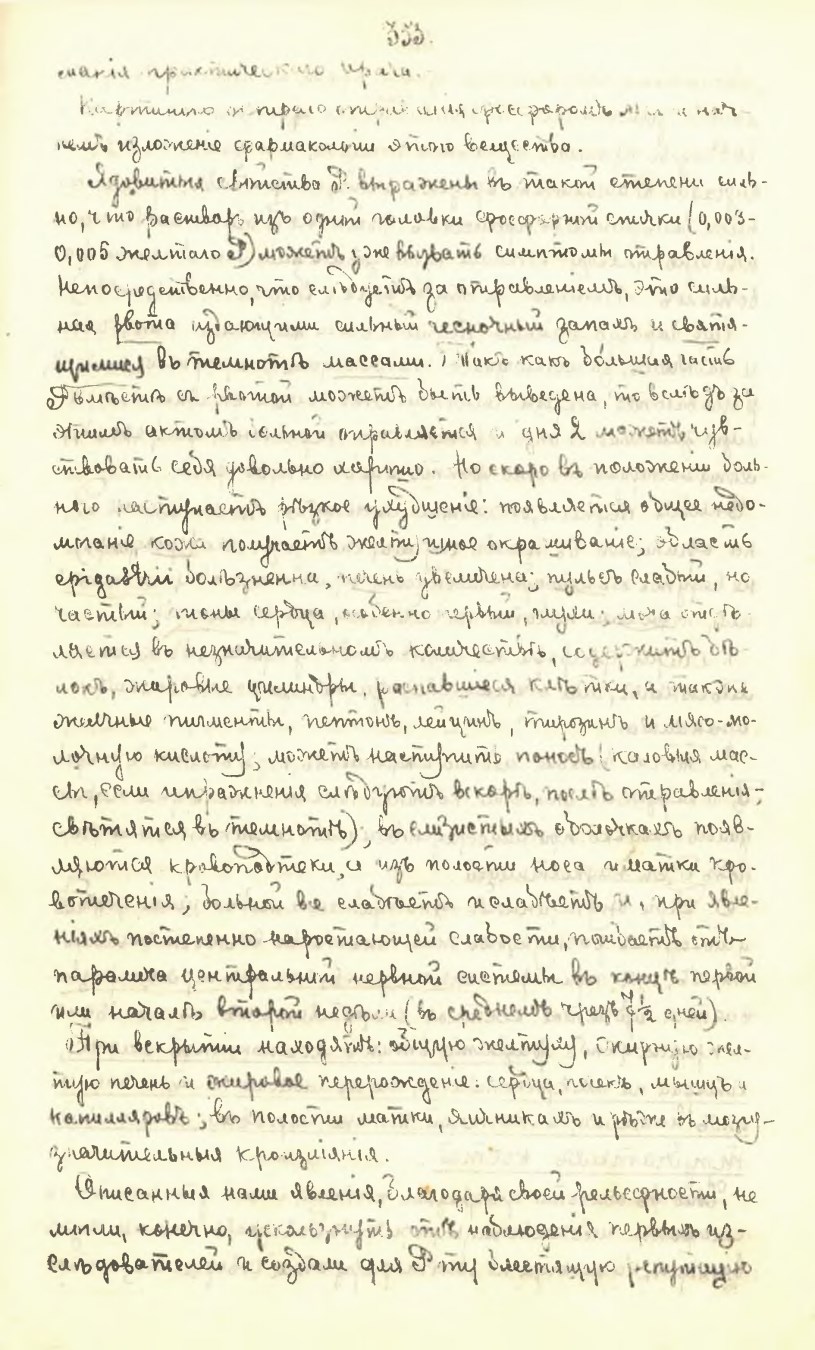 353.
манія практическаго врача.
Картиною остраго отравленія фосфоромъ мы и нач-
немъ изложеніе фармакологіи этого вещества.
Ядовитыя свойства P. выражены въ такой степени силь-
но, что растворъ изъ одной головки фосфорной спички (0,003-
0,005 желтаго P) можетъ уже вызвать симптомы отравленія.
Непосредственно, что слѣдуетъ за отравленіемъ, это силь-
ная рвота издающими сильный чесночный запахъ и святя-
щимися въ темнотѣ массами. Такъ какъ большая часть
P вмѣстѣ съ рвотой можетъ быть выведена, то вслѣдъ за
этимъ актомъ больной оправляется и дня 2 можетъ чув-
ствовать себя довольно хорошо. Но скоро въ положеніи боль-
ного наступаетъ рѣзкое ухудшеніе: появляется общее недо-
моганіе, кожа получаетъ желтушное окрашиваніе; область
epigastrii болѣзненна, печень увеличена; пульсъ слабый, но
частый; тоны сердца, особенно первый, глухи; моча отдѣ-
ляется въ незначительномъ количествѣ, содержитъ бѣ-
локъ, жировые цилиндры, распавшіеся клѣтки, а также
желчные пигменты, пептонъ, лейцинъ, тирозинъ и мясо-мо-
лочную кислоту; можетъ наступить поносъ (каловыя мас-
сы, если испражненія слѣдуютъ вскорѣ послѣ отравленія,
свѣтятся въ темнотѣ); въ слизистыхъ оболочкахъ появ-
ляются кровоподтеки, а изъ полости носа и матки кро-
вотеченія; больной все слабѣетъ и слабѣетъ и, при явле-
ніяхъ постепенно наростающей слабости, погибаетъ отъ
паралича центральной нервной системы въ концѣ первой
или началѣ второй недѣли (въ среднемъ чрезъ 7½ дней).
При вскрытіи находятъ: общую желтуху, жирную жел-
тую печень и жировое перерожденіе: сердца, почекъ, мышцъ и
капилляровъ; въ полости матки, яичникахъ и рѣже въ мозгу-
значительныя кровизліянія.
Описанныя нами явленія, благодаря своей рельефности, не
могли, конечно, ускользнуть отъ наблюденія первыхъ из-
слѣдователей и создали для P ту блестящую репутацію